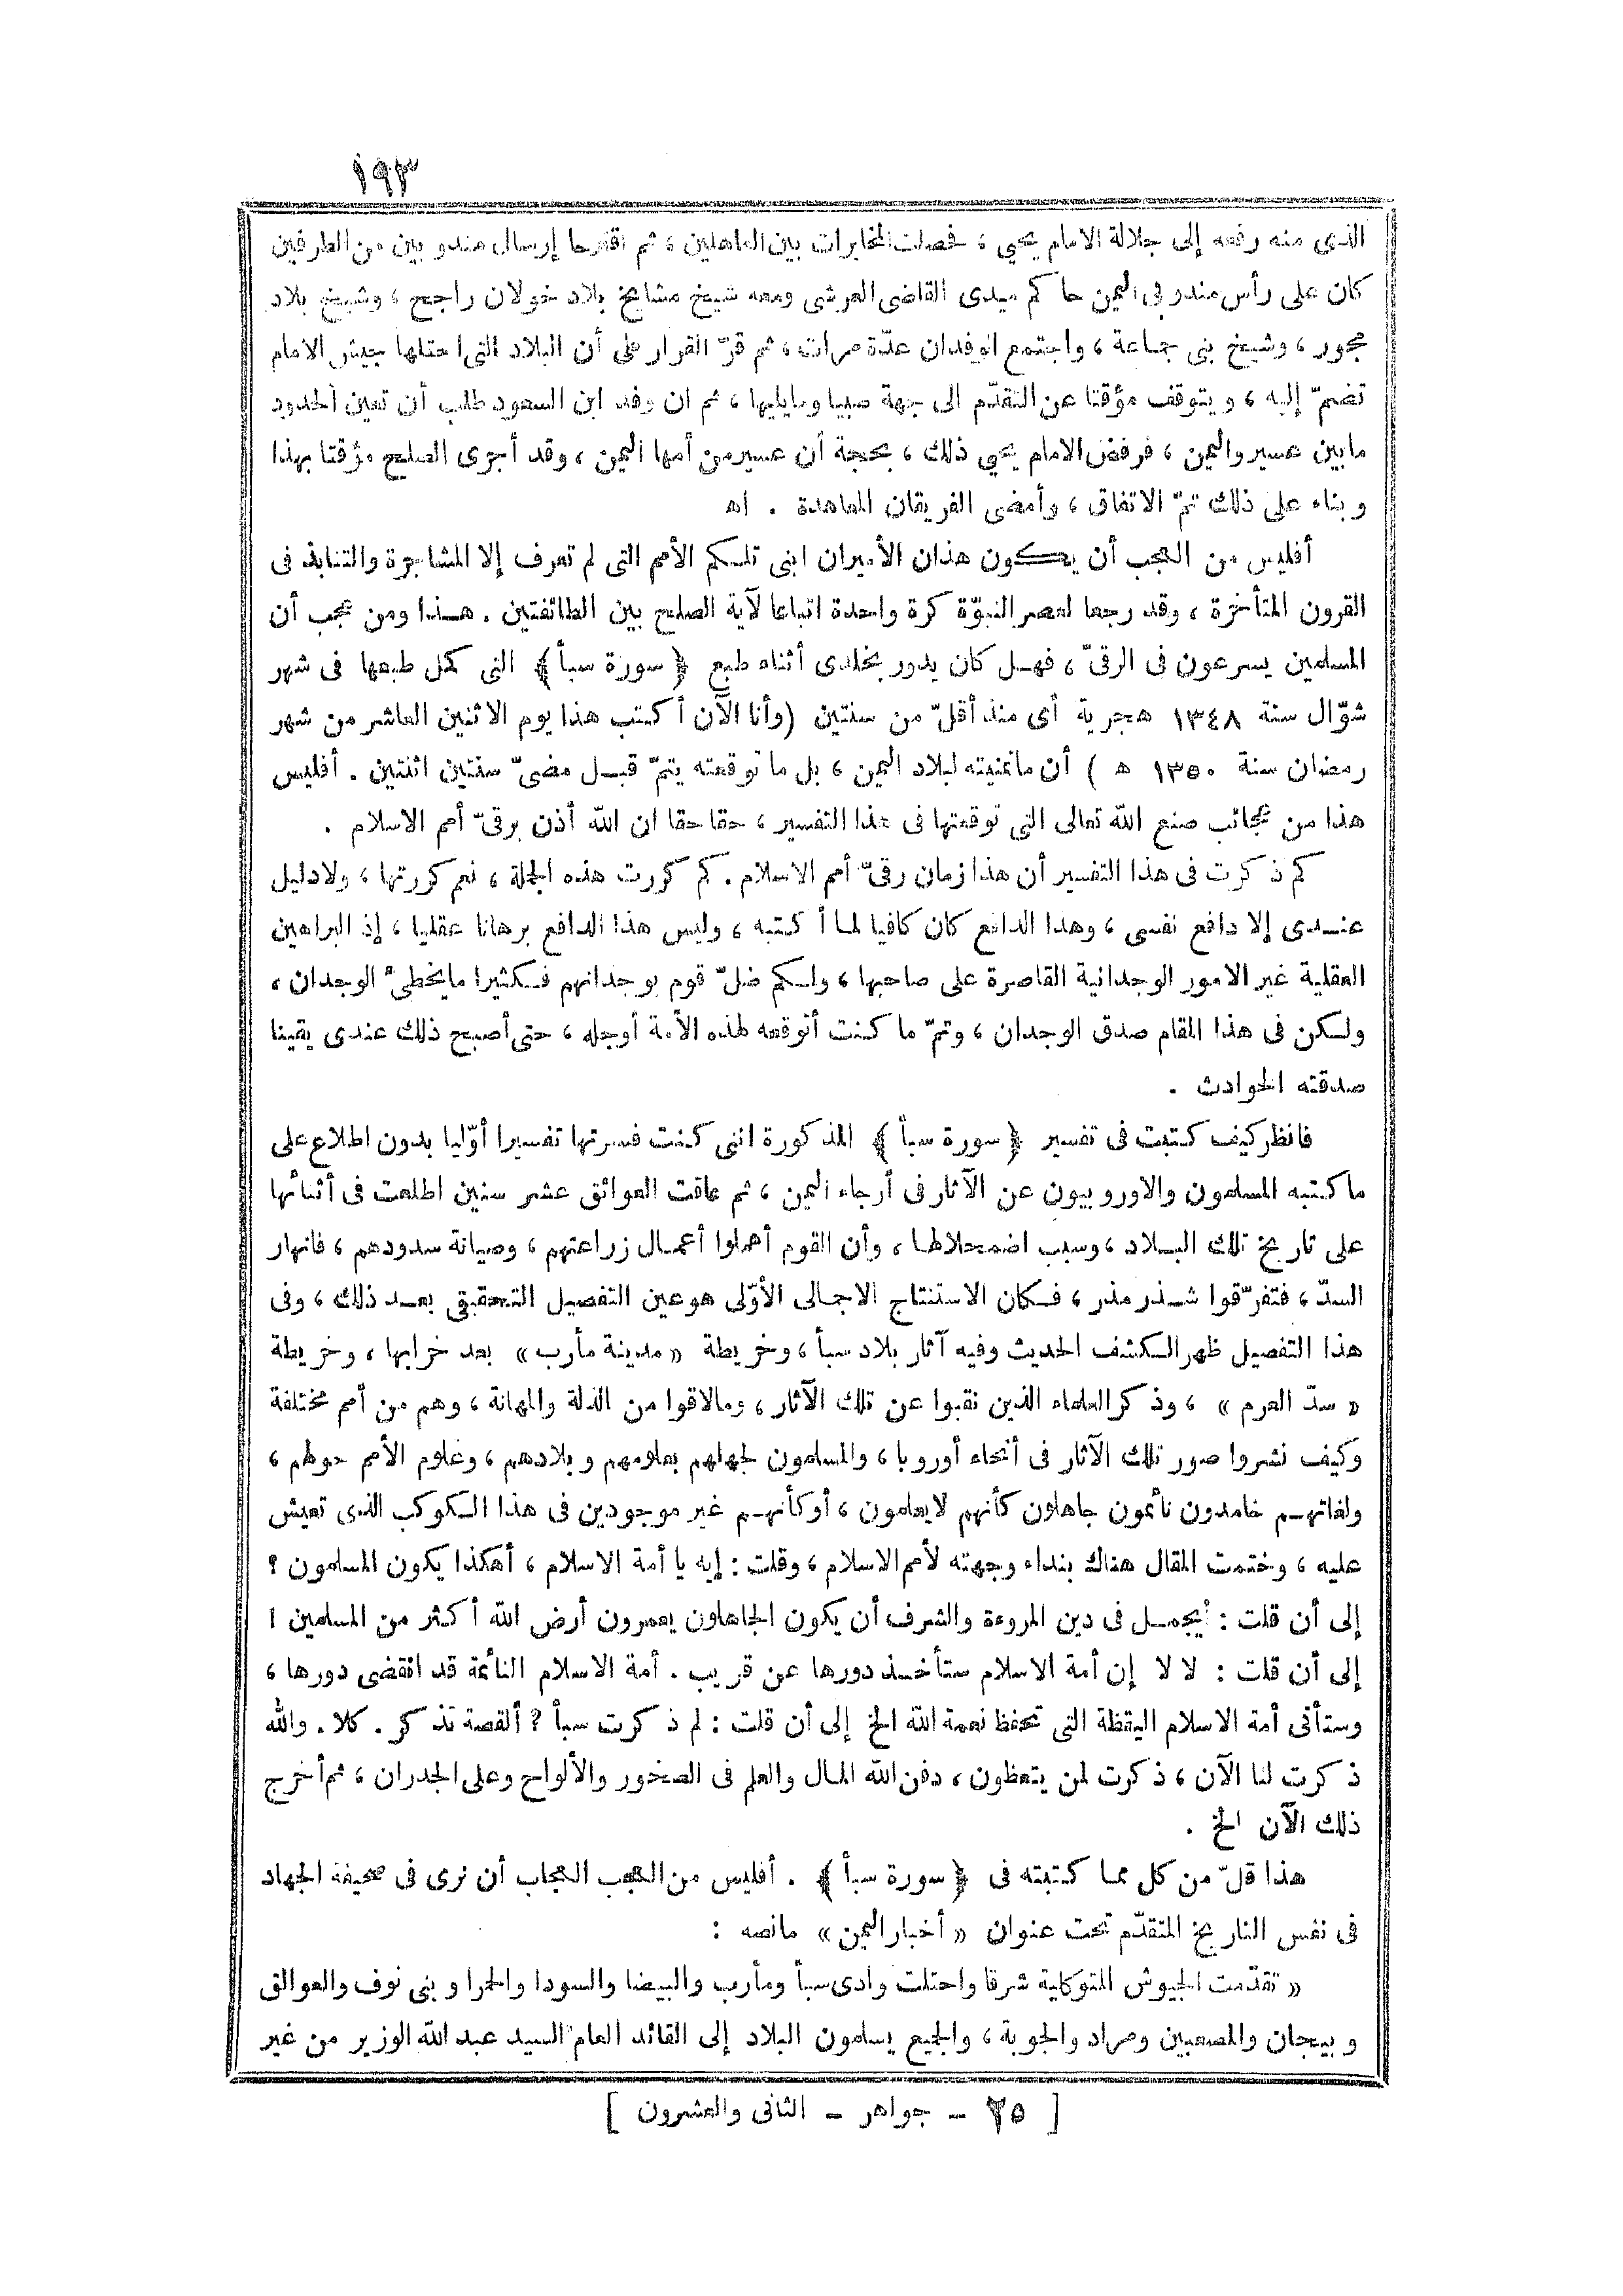 ١٩٣
الذى منه رفعه إلى جلالة الامام يحيى ، فحصلت المخابرات بين العاهلين ، ثم اقترحا إرسال مندوبين من الطرفين
كان على رأس مندوبى اليمن حاكم ميدى القاضى العرشى ومعه شيخ مشايخ بلاد خولان راجح ، وشيخ بلاد
مجور ، وشيخ بنى جماعة ، واجتمع الوفدان عدّة مرات ، ثم قرّ القرار على أن البلاد التى احتلها جيش الامام
تضمّ إليه ، ويتوقف مؤقتا عن التقدّم الى جهة صبيا ومايليها ، ثم ان وفد ابن السعود طلب أن تعين الحدود
مابين عسير واليمن ، فرفض الامام يحيى ذلك ، بحجة أن عسير من أمها اليمن ، وقد أجرى الصلح مؤقتا بهذا
وبناء على ذلك تمّ الاتفاق ، وأمضى الفريقان المعاهدة . اه
أفليس من العجب أن يكون هذان الأميران ابنى تلكم الأمم التى لم تعرف إلا المشاجرة والتنابذ فى
القرون المتأخرة ، وقد رجعا لعصر النبوّة كرة واحدة اتباعا لآية الصلح بين الطائفتين . هذا ومن عجب أن
المسلمين يسرعون فى الرقىّ ، فهل كان يدور بخلدى أثناء طبع ﴿ سورة سبأ ﴾ التى كمل طبعها فى شهر
شوّال سنة ١٣٤٨ هجرية أى منذ أقلّ من سنتين (وأنا الآن أكتب هذا يوم الاثنين العاشر من شهر
رمضان سنة ١٣٥٠ ه ) أن ماتمنيته لبلاد اليمن ، بل ما توقعته يتمّ قبل مضىّ سنتين اثنتين . أفليس
هذا من عجائب صنع الله تعالى التى توقعتها فى هذا التفسير ، حقا حقا ان الله أذن برقىّ أمم الاسلام .
كم ذكرت فى هذا التفسير أن هذا زمان رقىّ أمم الاسلام . كم كررت هذه الجملة ، نعم كررتها ، ولادليل
عندى إلا دافع نفسى ، وهذا الدافع كان كافيا لما أكتبه ، وليس هذا الدافع برهانا عقليا ، إذ البراهين
العقلية غير الامور الوجدانية القاصرة على صاحبها ، ولكم ضلّ قوم بوجدانهم فكثيرا مايخطئ الوجدان ،
ولكن فى هذا المقام صدق الوجدان ، وتمّ ما كنت أتوقعه لهذه الأمة أوجله ، حتى أصبح ذلك عندى يقينا
صدقته الحوادث .
فانظر كيف كتبت فى تفسير ﴿ سورة سبأ ﴾ المذكورة اننى كنت فسرتها تفسيرا أوّليا بدون اطلاع على
ماكتبه المسلمون والاوروبيون عن الآثار فى أرجاء اليمن ، ثم عاقت العوائق عشر سنين اطلعت فى أثنائها
على تاريخ تلك البلاد ، وسبب اضمحلالها ، وأن القوم أهملوا أعمال زراعتهم ، وصيانة سدودهم ، فانهار
السدّ ، فتفرّقوا شذر مذر ، فكان الاستنتاج الاجمالى الأوّلى هو عين التفصيل التحقيقى بعد ذلك ، وفى
هذا التفصيل ظهر الكشف الحديث وفيه آثار بلاد سبأ ، وخريطة « مدينة مأرب » بعد خرابها ، وخريطة
« سدّ العرم » ، وذكر العلماء الذين نقبوا عن تلك الآثار ، ومالاقوا من الذلة والمهانة ، وهم من أمم مختلفة
وكيف نشروا صور تلك الآثار فى أنحاء أوروبا ، والمسلمون لجهلهم بعلومهم وبلادهم ، وعلوم الأمم حولهم ،
ولغاتهم خامدون نائمون جاهلون كأنهم لايعلمون ، أوكأنهم غير موجودين فى هذا الكوكب الذى تعيش
عليه ، وختمت المقال هناك بنداء وجهته لأمم الاسلام ، وقلت : إيه يا أمة الاسلام ، أهكذا يكون المسلمون ؟
إلى أن قلت : أيجمل فى دين المروءة والشرف أن يكون الجاهلون يعمرون أرض الله أكثر من المسلمين !
إلى أن قلت : لا لا إن أمة الاسلام ستأخذ دورها عن قريب . أمة الاسلام النائمة قد انقضى دورها ،
وستأتى أمة الاسلام اليقظة التى تحفظ نعمة الله الخ إلى أن قلت : لم ذكرت سبأ ؟ ألقصة تذكر . كلا . والله
ذكرت لنا الآن ، ذكرت لمن يتعظون ، دفن الله المال والعلم فى الصخور والألواح وعلى الجدران ، ثم أخرج
ذلك الآن الخ .
هذا قلّ من كل مما كتبته فى ﴿ سورة سبأ ﴾ . أفليس من العجب العجاب أن نرى فى صحيفة الجهاد
فى نفس التاريخ المتقدّم تحت عنوان « أخبار اليمن » مانصه :
« تقدّمت الجيوش المتوكلية شرقا واحتلت وادى سبأ ومأرب والبيضا والسودا والحمرا وبنى نوف والعوالق
وبيحان والمصعبين ومراد والجوبة ، والجميع يسلمون البلاد إلى القائد العام السيد عبد الله الوزير من غير
[ ٢٥ – جواهر – الثانى والعشرون ]